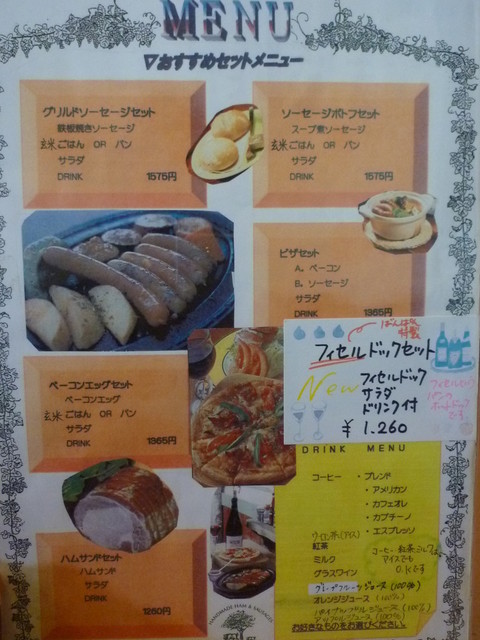 MENU
▽おすすめセットメニュー
グリルドソーセージセット
鉄板焼きソーセージ
玄米ごはん OR パン
サラダ
DRINK 1575円
ソーセージポトフセット
スープ煮ソーセージ
玄米ごはん OR パン
サラダ
DRINK 1575円
ピザセット
A. ベーコン
B. ソーセージ
サラダ
DRINK 1365円
フィセルドックセット
New
フィセルドック
サラダ
ドリンク付
¥1,260
ベーコンエッグセット
ベーコンエッグ
玄米ごはん OR パン
サラダ
DRINK 1365円
ハムサンドセット
ハムサンド
サラダ
DRINK 1260円
DRINK MENU
コーヒー ・ブレンド
・アメリカン
・カフェオレ
・カプチーノ
・エスプレッソ
ウーロン茶(アイス)
紅茶
ミルク
グラスワイン
コーヒー 紅茶 ミルクは
アイスでも
O.Kです
グレープフルーツジュース(100%)
オレンジジュース(100%)
パイナップルジュース(100%)
アップルジュース(100%)
お好きなものをお選びください。
HANDMADE HAM & SAUSAGES